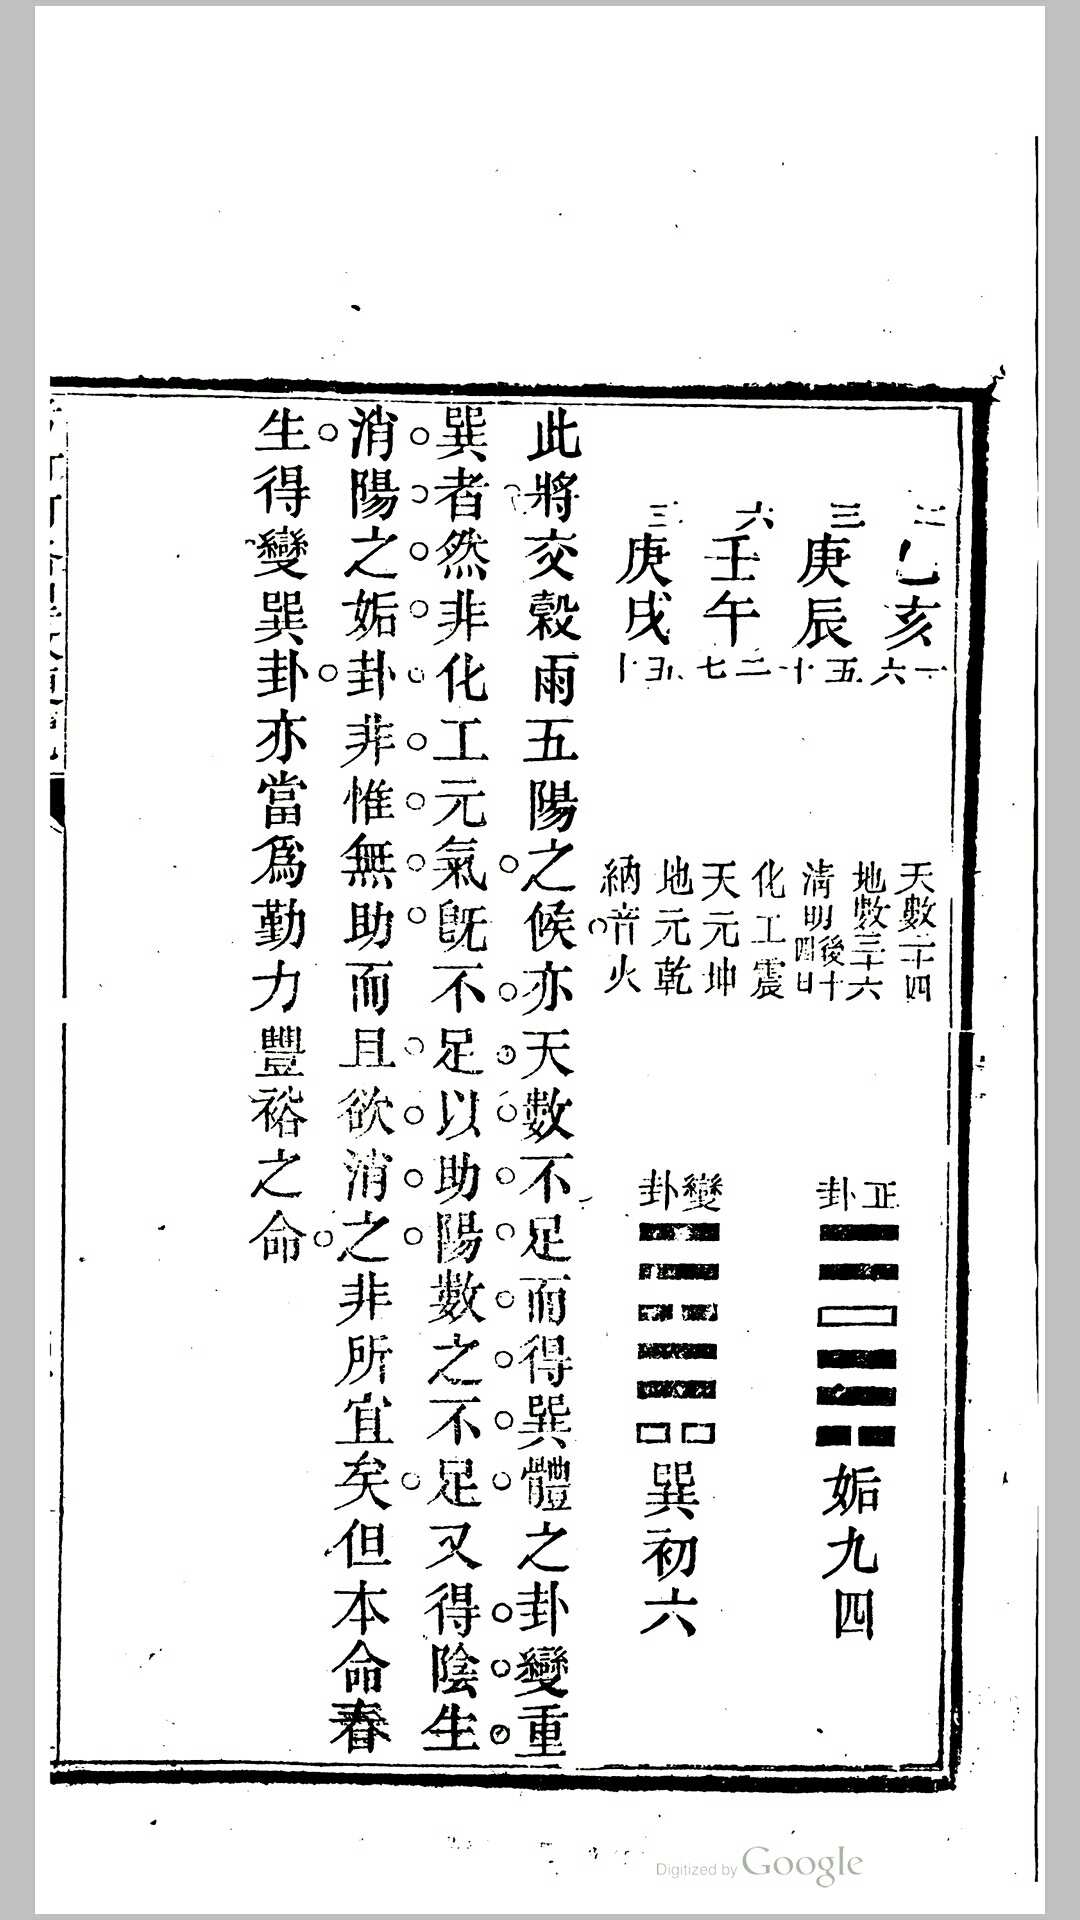 二乙亥一六
三庚辰五十
六壬午二七
三庚戌五十
天數二十四
地數三十六
清明後十四日
化工震
天元坤
地元乾
納音火
正卦
姤九四
變卦
巽初六
此將交穀雨五陽之候亦天數不足而得巽體之卦變重
巽者然非化工元氣旣不足以助陽數之不足又得陰生
消陽之姤卦非惟無助而且欲消之非所宜矣但本命春
生得變巽卦亦當爲勤力豐裕之命
Digitized by Google